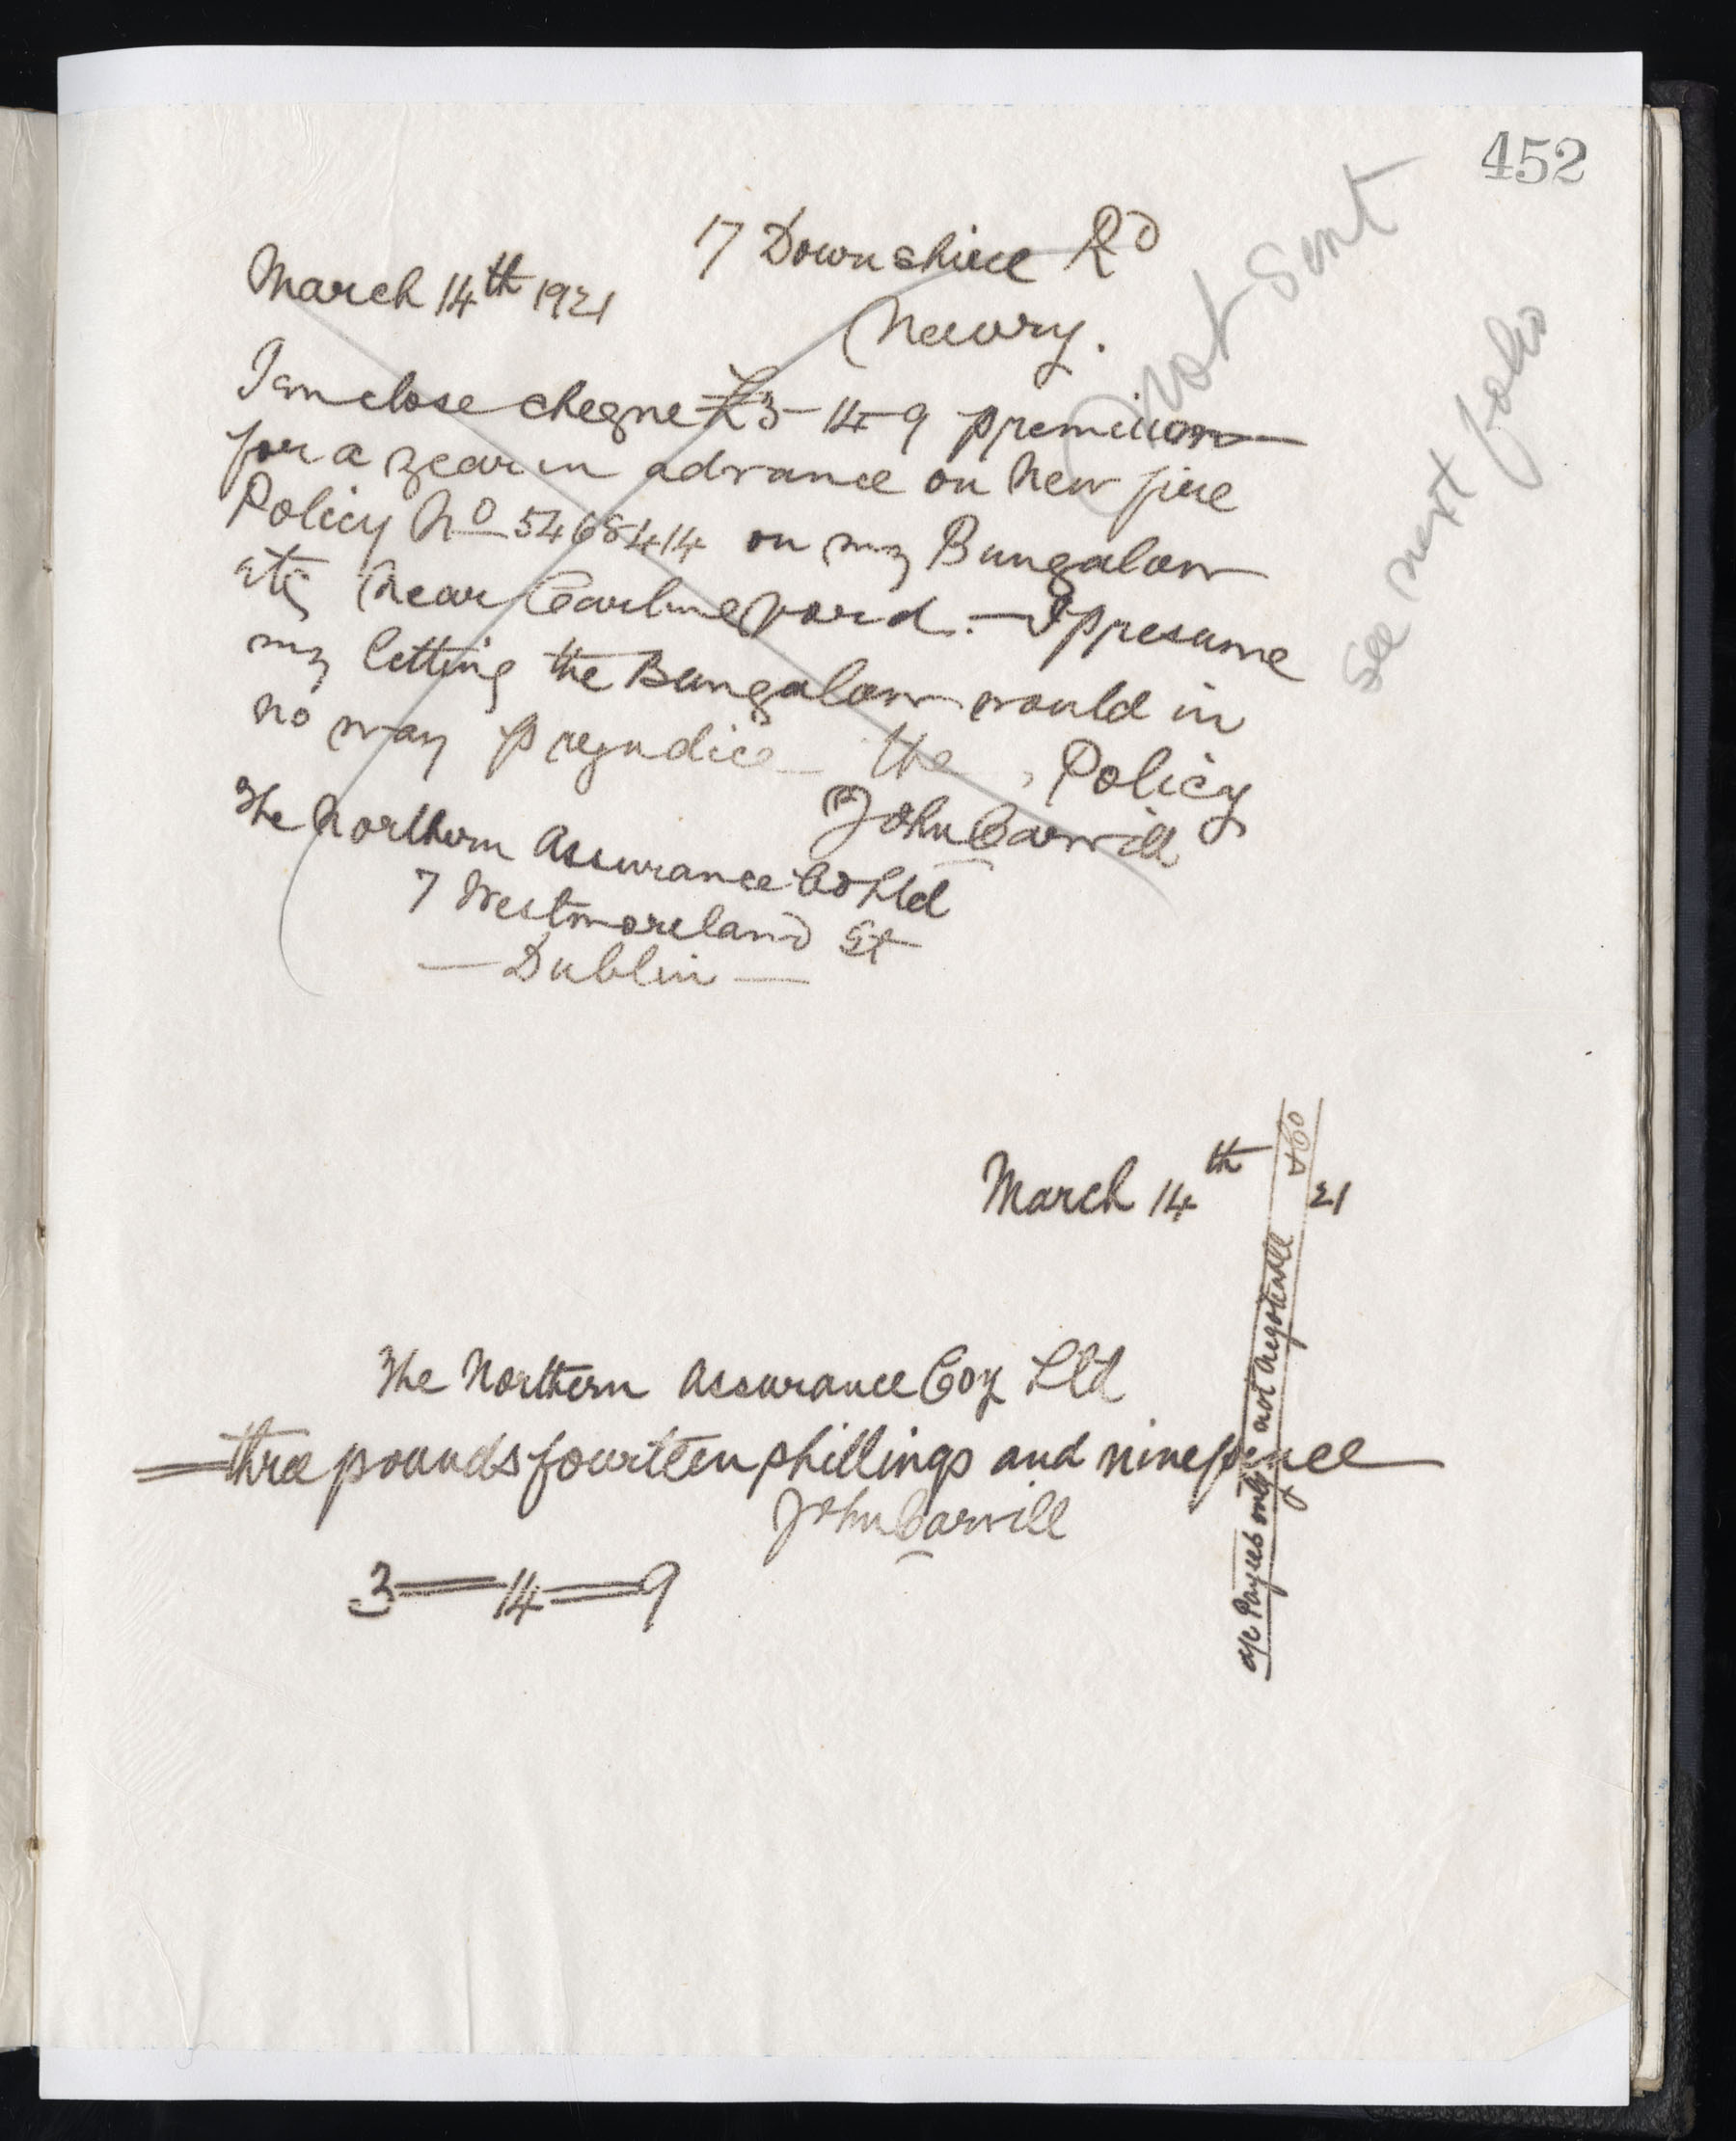 452
17 Downshire Rd
March 14th 1921
Newry.
not sent
see next folio
I enclose cheque £3-14-9 premium
for a year in advance on new fire
Policy No 5468414 on my Bungalow
etc near Carlingford. - I presume
my letting the Bungalow would in
no way prejudice the Policy
John Carvill
The Northern Assurance Co Ltd
7 Westmoreland St
- Dublin -
March 14th 21
& Co
a/c Payees only not negotiable
The Northern Assurance Coy Ltd
three pounds fourteen shillings and ninepence
John Carvill
3=14=9